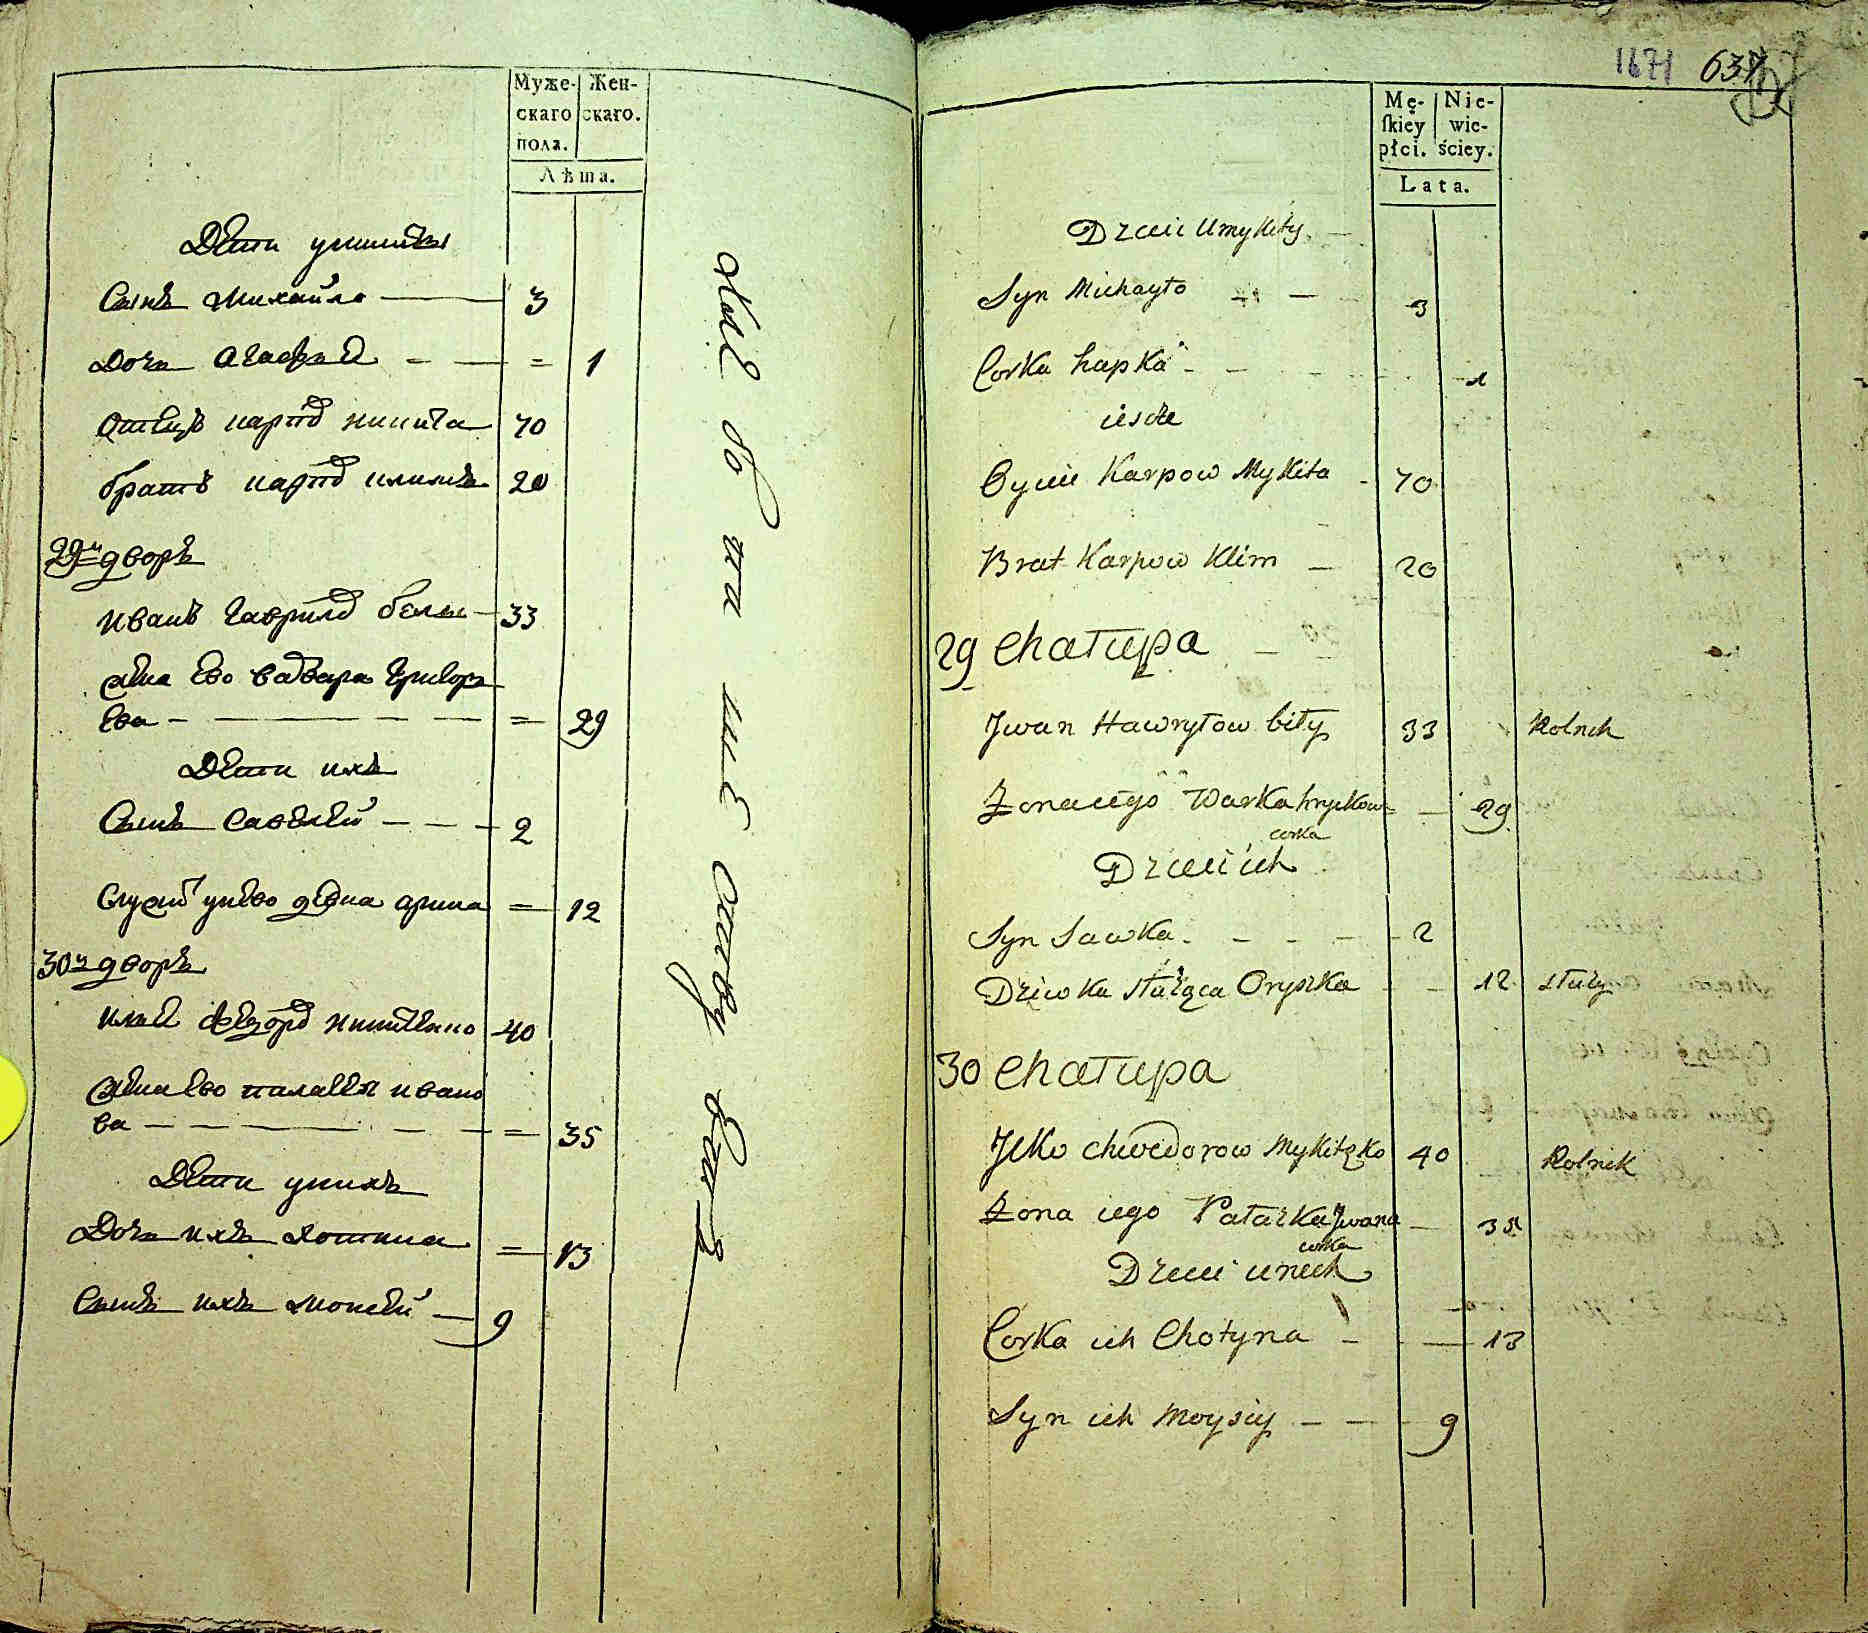 Муже-
скаго
пола.
Жен-
скаго.
Лѣта.
Дети
Сынъ Михайло — 3
Дочь Агафья — — = 1
Отецъ карпо́в никита 70
братъ карпо́в климъ 20
29й дворъ
иванъ Гаврило́в белы — 33
жена ево варвара Григорь
ева — — — — = 29
Дети ихъ
Сынъ Савелей — — — 2
девка арина = 12
30й дворъ
Илья федоро́в никитенко 40
жена ево палагея ивано
ва — — — — — = 35
Дети у нихъ
Дочь ихъ хотина = 13
Сынъ ихъ моисей — 9
1671 637
Mę-
ſkiey
płci.
Nie-
wie-
ściey.
Lata.
Dzieci U mykity —
Syn Michayło — — 3
Corka hapka — — 1
ieszcze
Oyciec Karpow Mykita 70
Brat Karpow Klim — 20
29 Chaтupa
Jwan Hawryłow biły 33 Rolnik
Żona iego Warka hryckow — 29
corka
Dzieci ich
Syn Sawka — — — — 2
Dziwka służąca Oryszka — — 12 służy
30 Chaтupa
Jlko Chwedorow Mykitzko 40 Rolnik
Żona iego Pałażka Jwana — 35
corka
Dzieci u nich
Corka ich Chotyna — — 13
Syn ich Moysiy — — 9